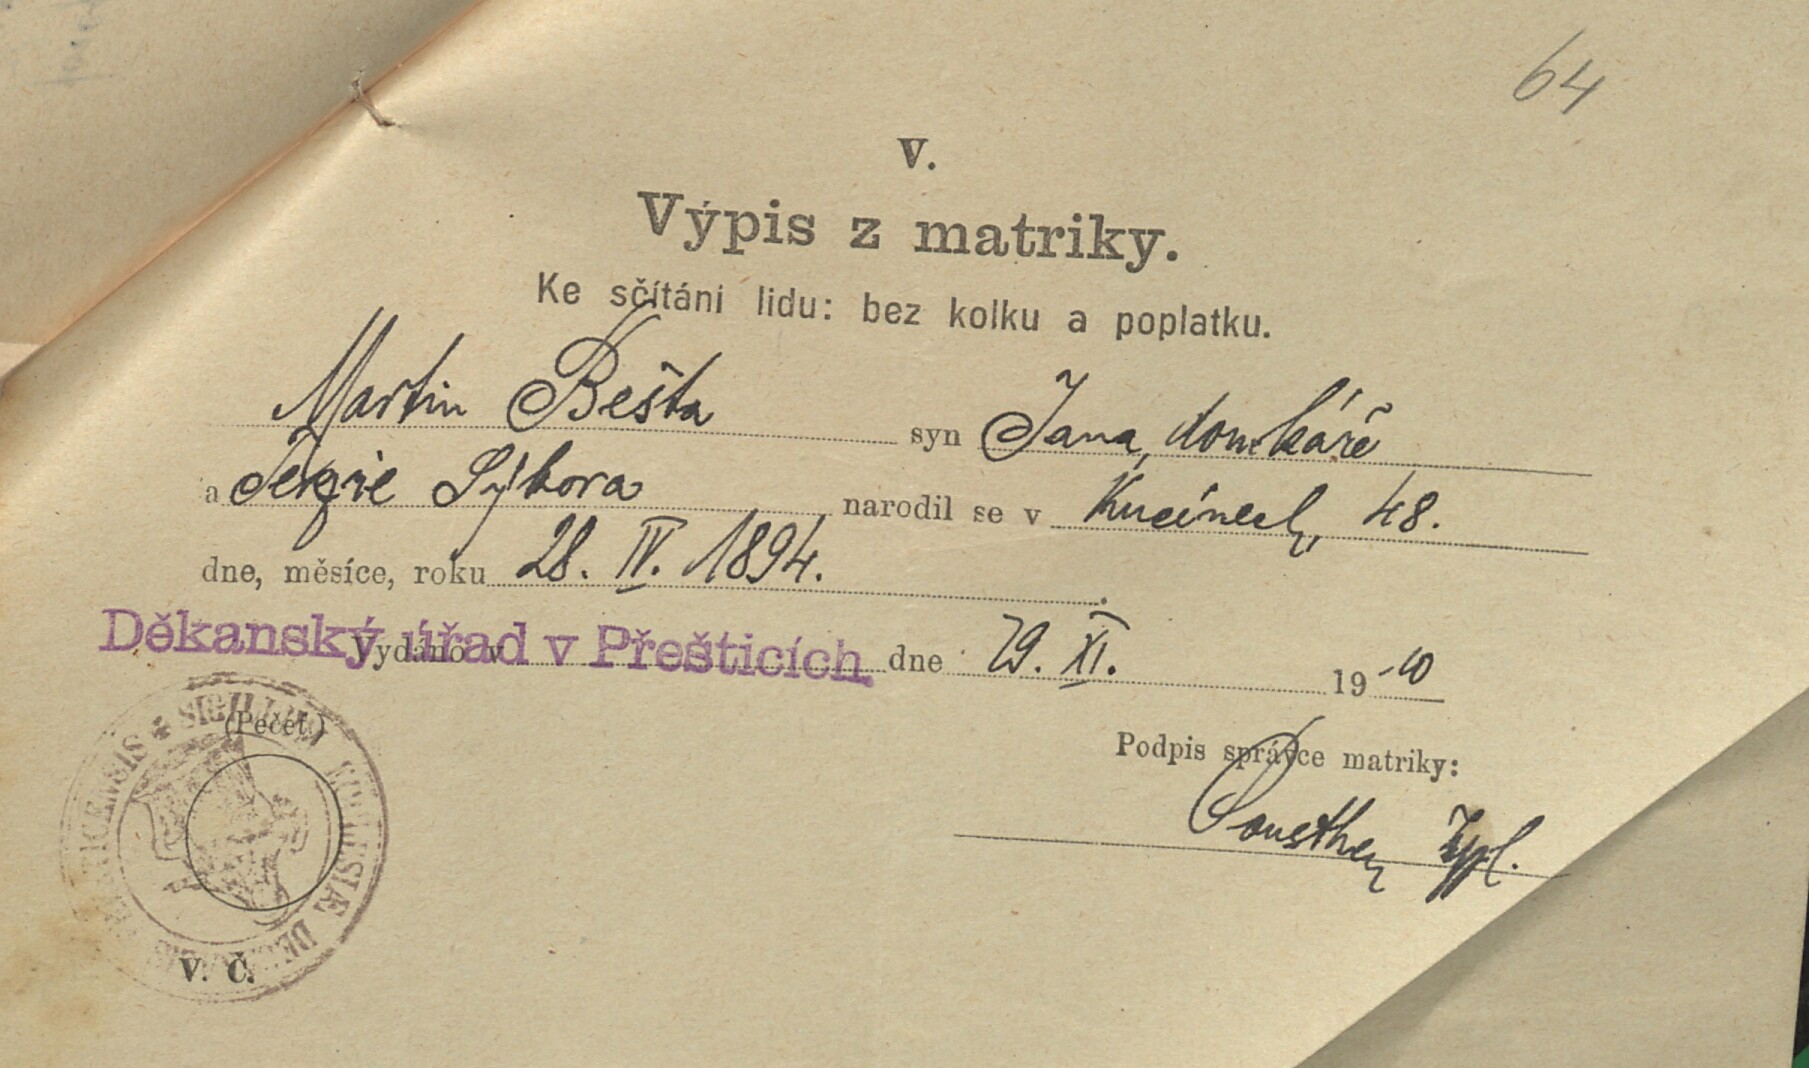 64
V.
Výpis z matriky.
Ke sčítání lidu: bez kolku a poplatku.
Martin Bešta syn Jana, domkáře
a Terezie Sýkora narodil se v Kucínech, 48.
dne, měsíce, roku 28. IV. 1894.
Děkanský úřad v Přešticích
Vydáno v dne 29. XI. 1910
(Pečeť.)
Podpis správce matriky:
V. Č.